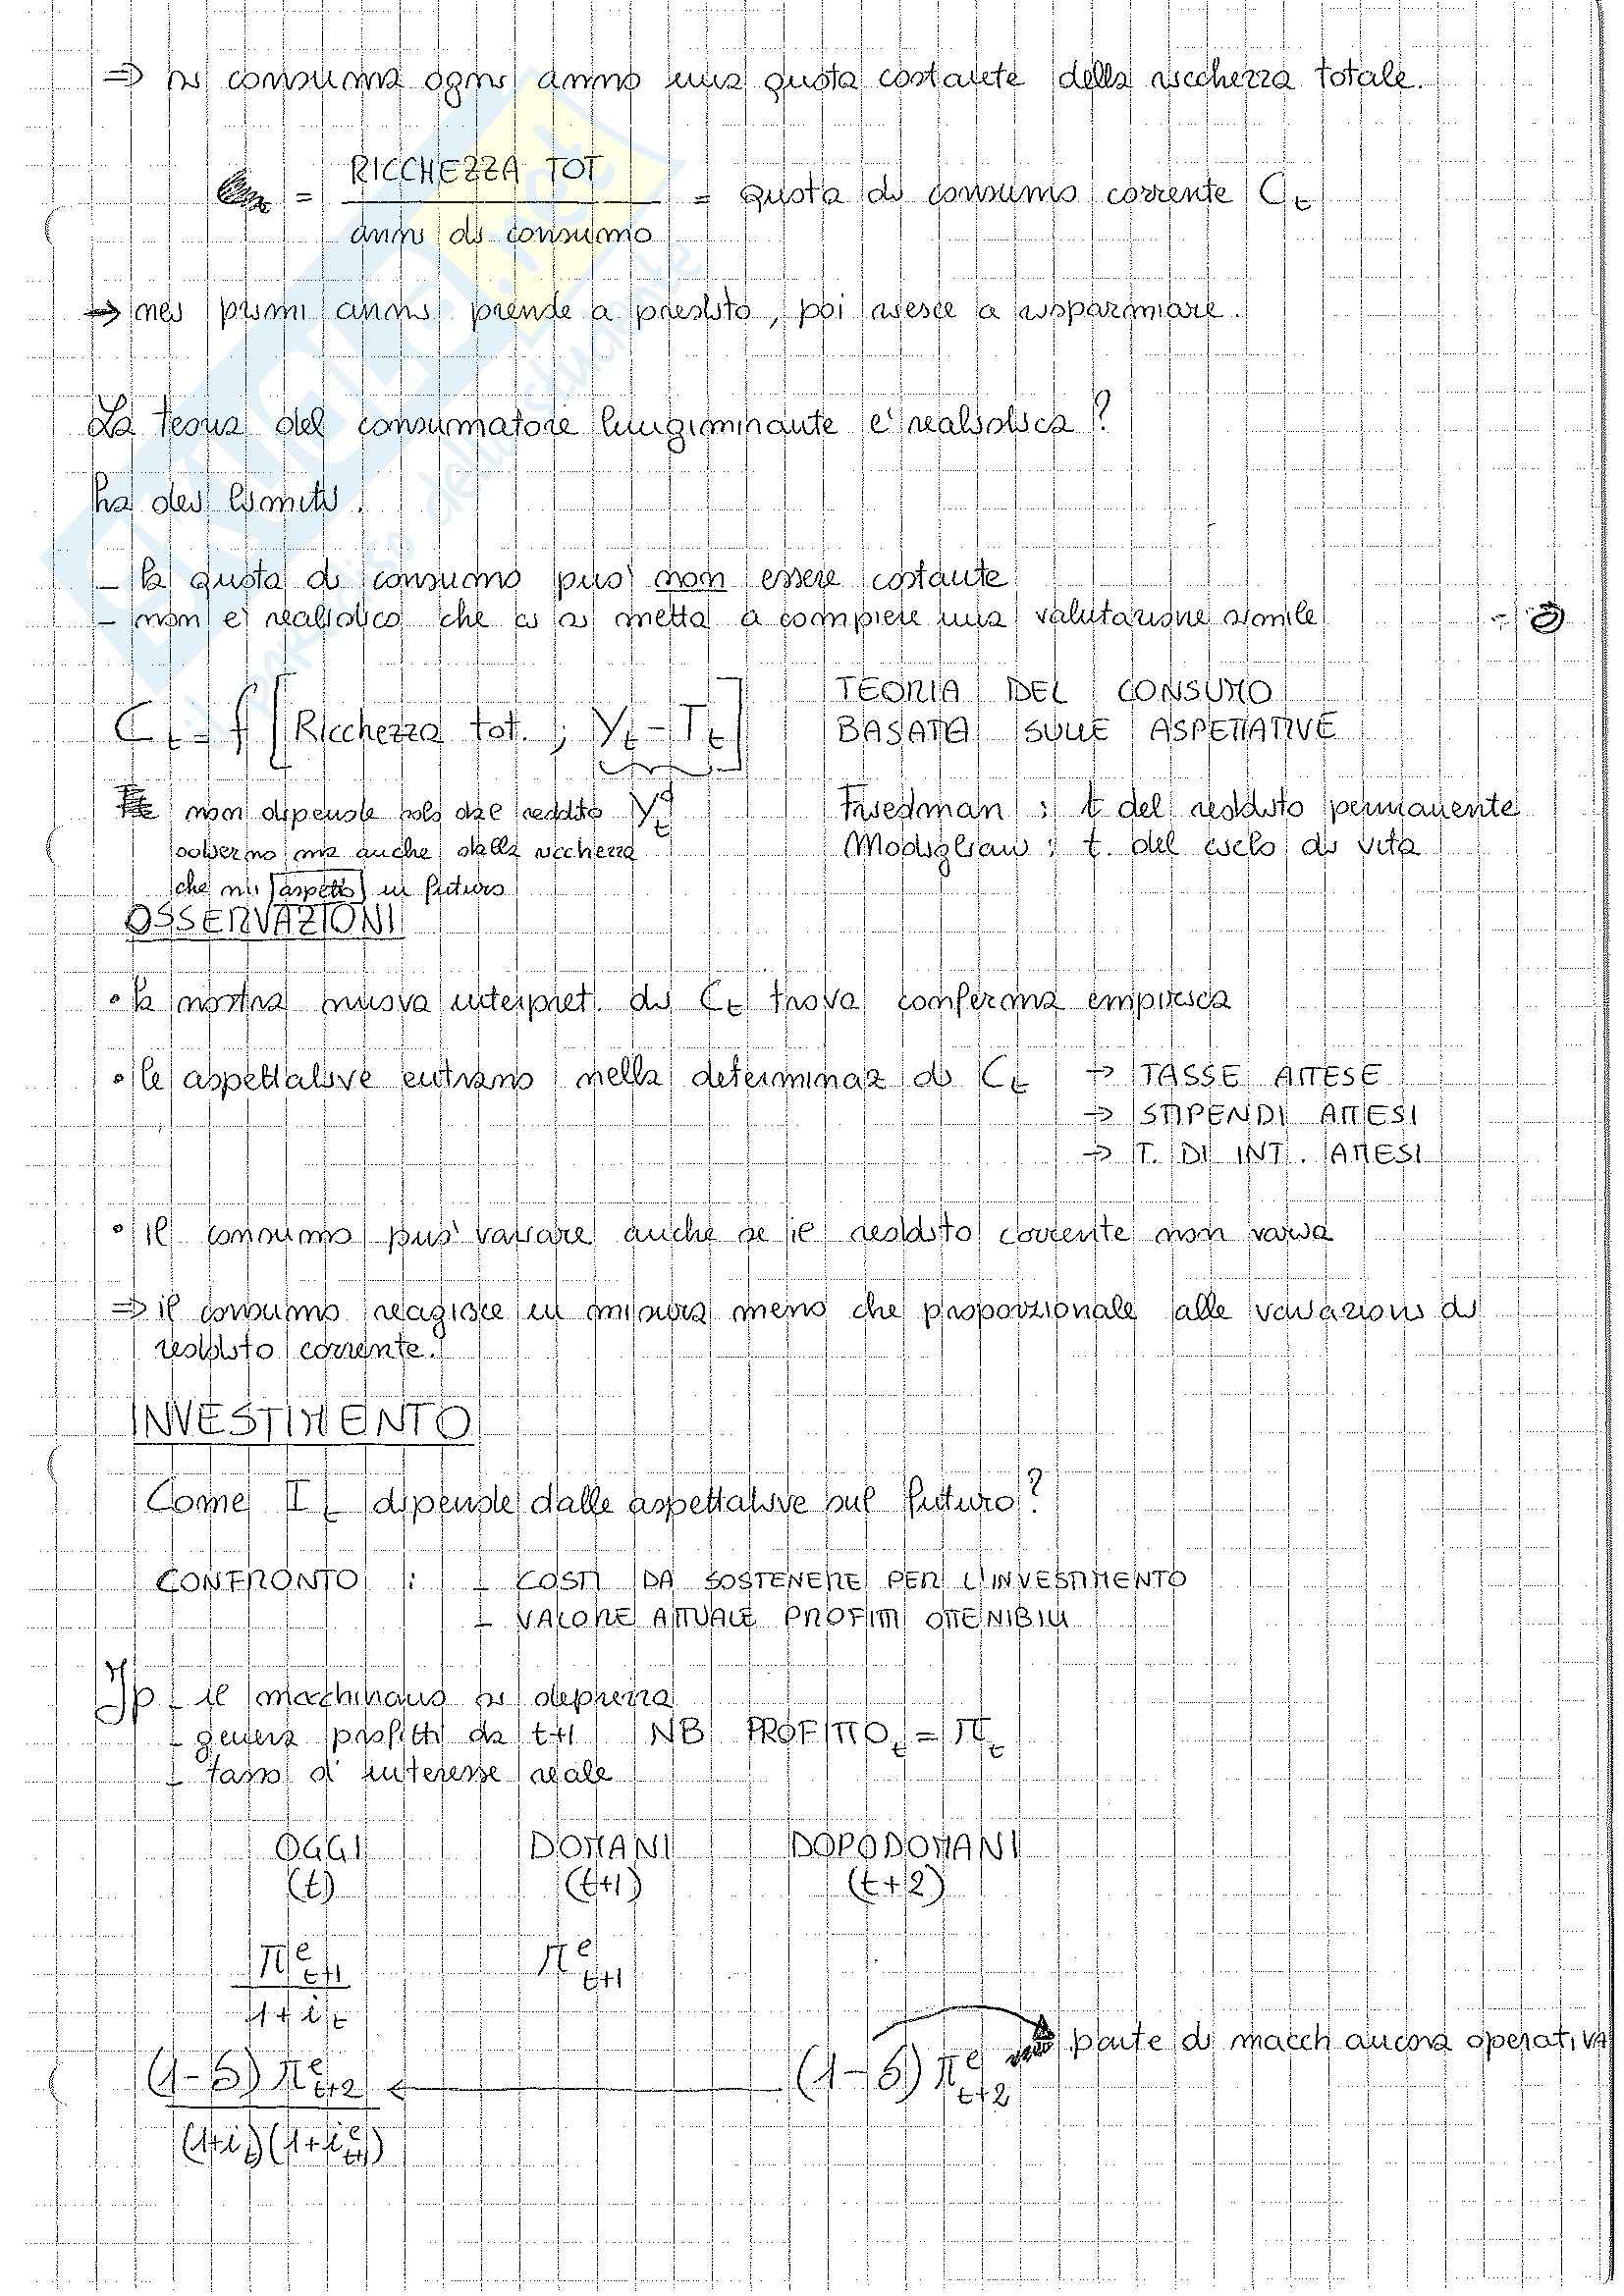 ⇒ si consuma ogni anno una quota costante della ricchezza totale.
= RICCHEZZA TOT / anni di consumo = quota di consumo corrente Ct
→ nei primi anni prende a prestito, poi riesce a risparmiare.
La teoria del consumatore lungimirante e' realistica?
ha dei limiti.
- la quota di consumo puo' non essere costante
- non e' realistico che ci si metta a compiere una valutazione simile
Ct = f [Ricchezza tot. ; Yt - Tt]
TEORIA DEL CONSUMO
BASATA SULLE ASPETTATIVE
non dipende solo dal reddito Y^d_t
odierno ma anche dalla ricchezza
che mi aspetto in futuro
Friedman : t del reddito permanente
Modigliani : t. del ciclo di vita
OSSERVAZIONI
• la nostra nuova interpret. di Ct trova conferma empirica
• le aspettative entrano nella determinaz di Ct → TASSE ATTESE
→ STIPENDI ATTESI
→ T. DI INT. ATTESI
• il consumo puo' variare anche se il reddito corrente non varia
⇒ il consumo reagisce in misura meno che proporzionale alle variazioni di
reddito corrente.
INVESTIMENTO
Come It dipende dalle aspettative sul futuro?
CONFRONTO : - COSTI DA SOSTENERE PER L'INVESTIMENTO
- VALORE ATTUALE PROFITTI OTTENIBILI
Ip - il macchinario si deprezza
- genera profitti da t+1 NB PROFITTO_t = π_t
- tasso d'interesse reale
OGGI DOMANI DOPODOMANI
(t) (t+1) (t+2)
π^e_t+1 / 1+i_t π^e_t+1
(1-δ) π^e_t+2 / (1+i_t)(1+i^e_t+1) ← (1-δ) π^e_t+2 parte di macch ancora operativa